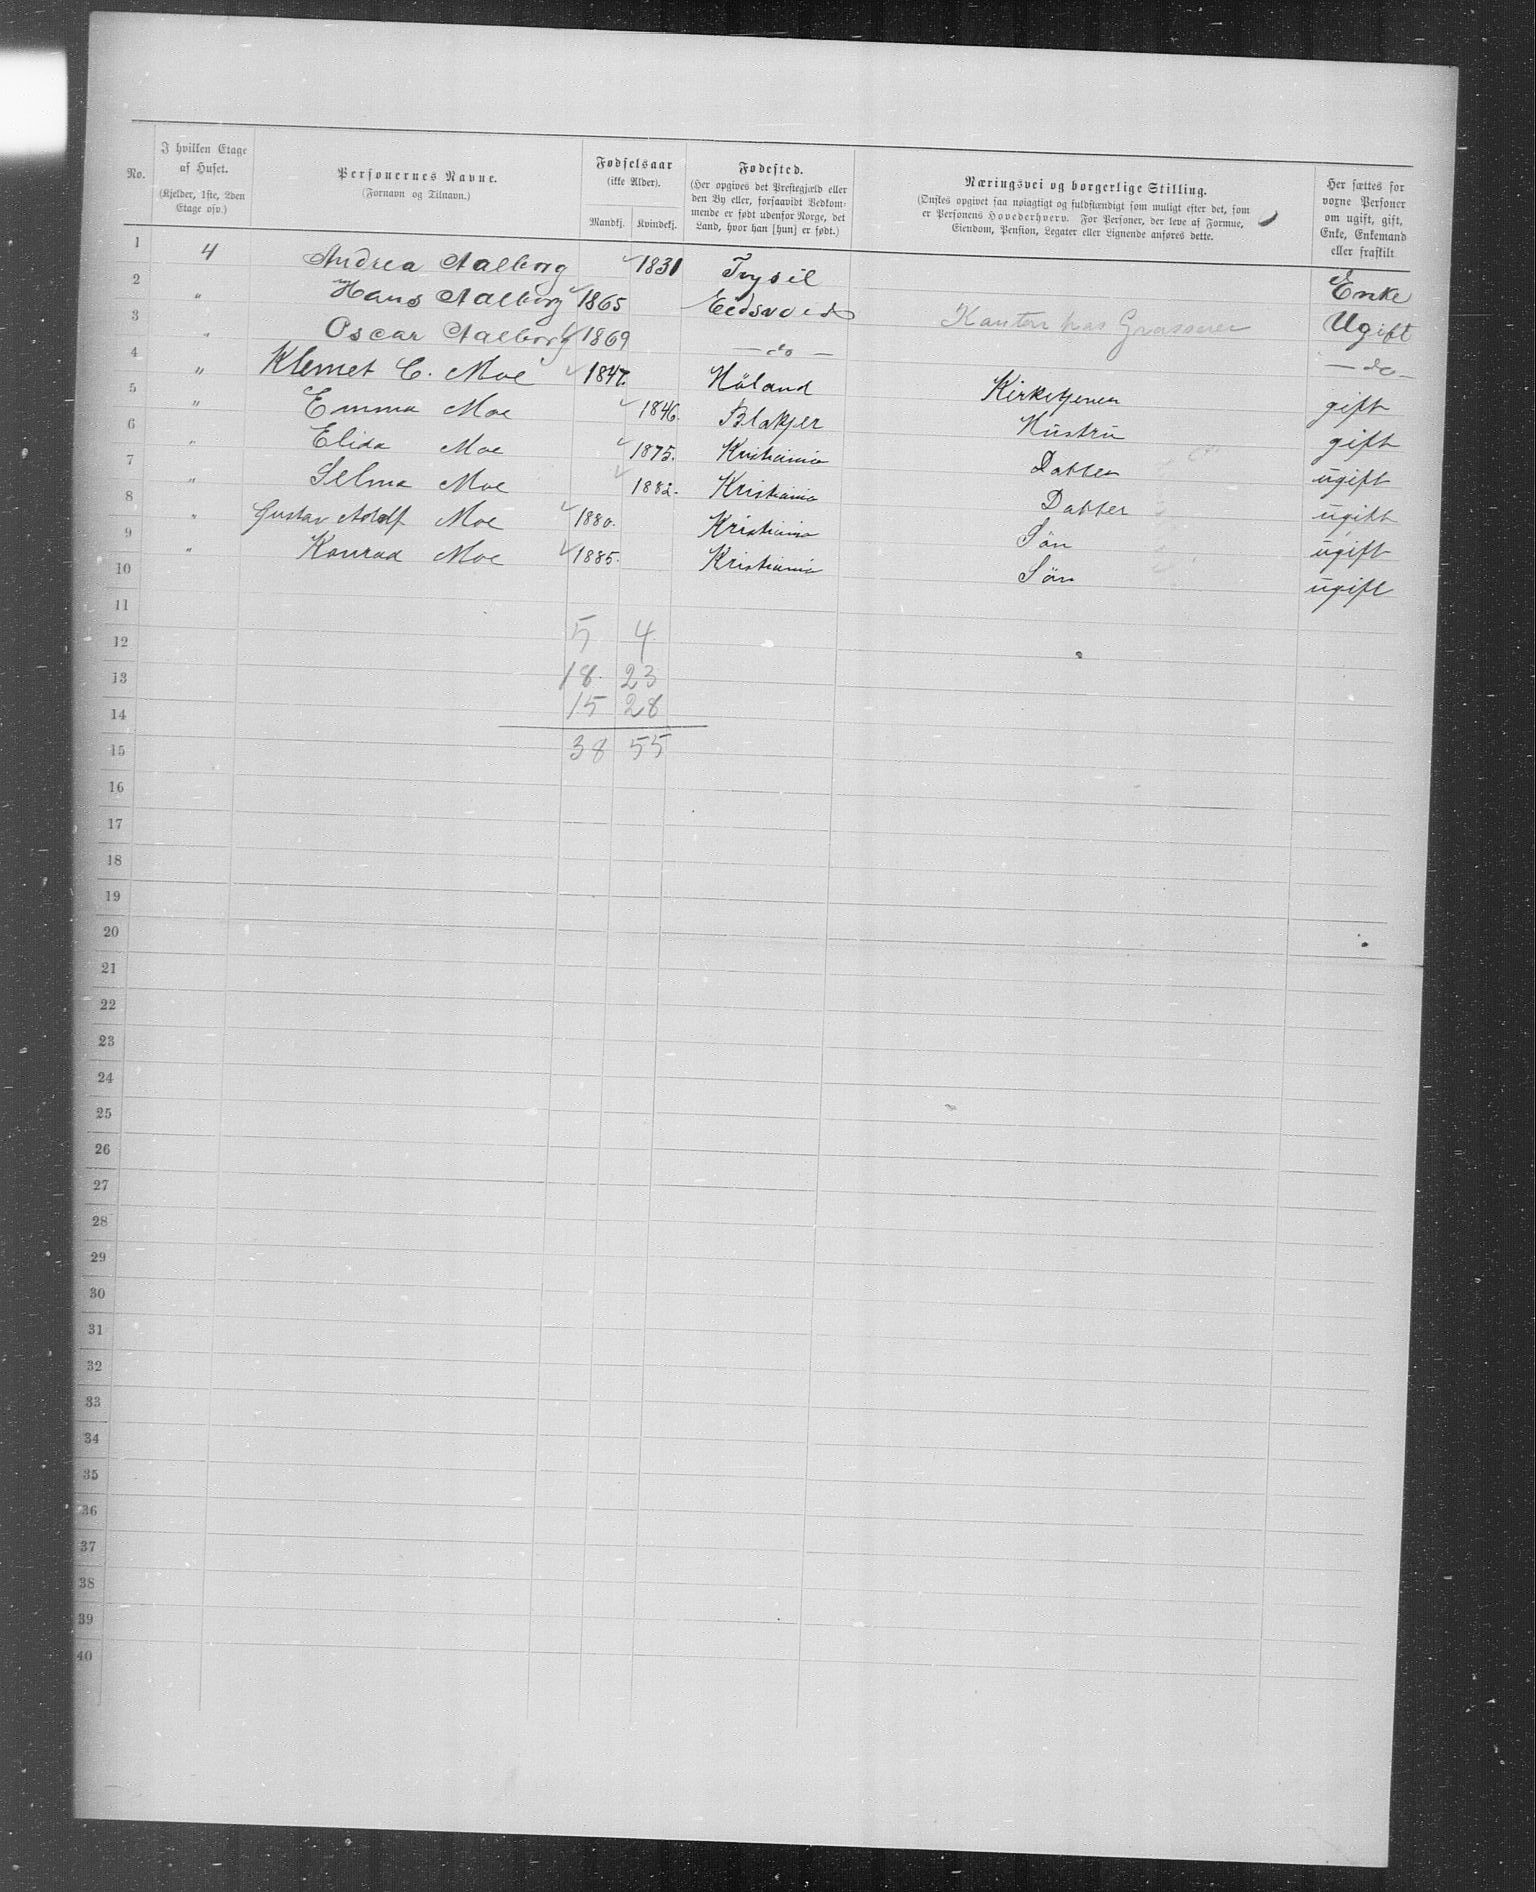 No. I hvilken Etage af Huset. (Kjelder, 1ste, 2den Etage osv.) Personernes Navne. (Fornavn og Tilnavn.) Fødselsaar (ikke Alder). Mandkj. Kvindekj. Fødested. (Her opgives det Prestegjæld eller den By eller, forsaavidt Vedkommende er født udenfor Norge, det Land, hvor han [hun] er født.) Næringsvei og borgerlige Stilling. (Ønskes opgivet saa nøiagtigt og fuldstændigt som muligt efter det, som er Personens Hovederhverv. For Personer, der leve af Formue, Eiendom, Pension, Legater eller Lignende anføres dette. Her sættes for voxne Personer om ugift, gift, Enke, Enkemand eller fraskilt
1 4 Andrea Aalborg 1831 Trysil Enke
2 " Hans Aalborg 1865 Eidsvold Kontor hos Grosserer Ugift
3 " Oscar Aalborg 1869 — do — — do —
4 " Klemet C. Moe 1847. Höland Kirketjener gift
5 " Emma Moe 1846. Blakjer Hustru gift
6 " Elida Moe 1875. Kristiania Datter ugift
7 " Selma Moe 1882. Kristiania Datter ugift
8 " Gustav Adolf Moe 1880. Kristiania Sön ugift
9 " Konrad Moe 1885. Kristiania Sön ugift
10
11
12 5 4
13 18. 23
14 15 28
15 38 55
16
17
18
19
20
21
22
23
24
25
26
27
28
29
30
31
32
33
34
35
36
37
38
39
40